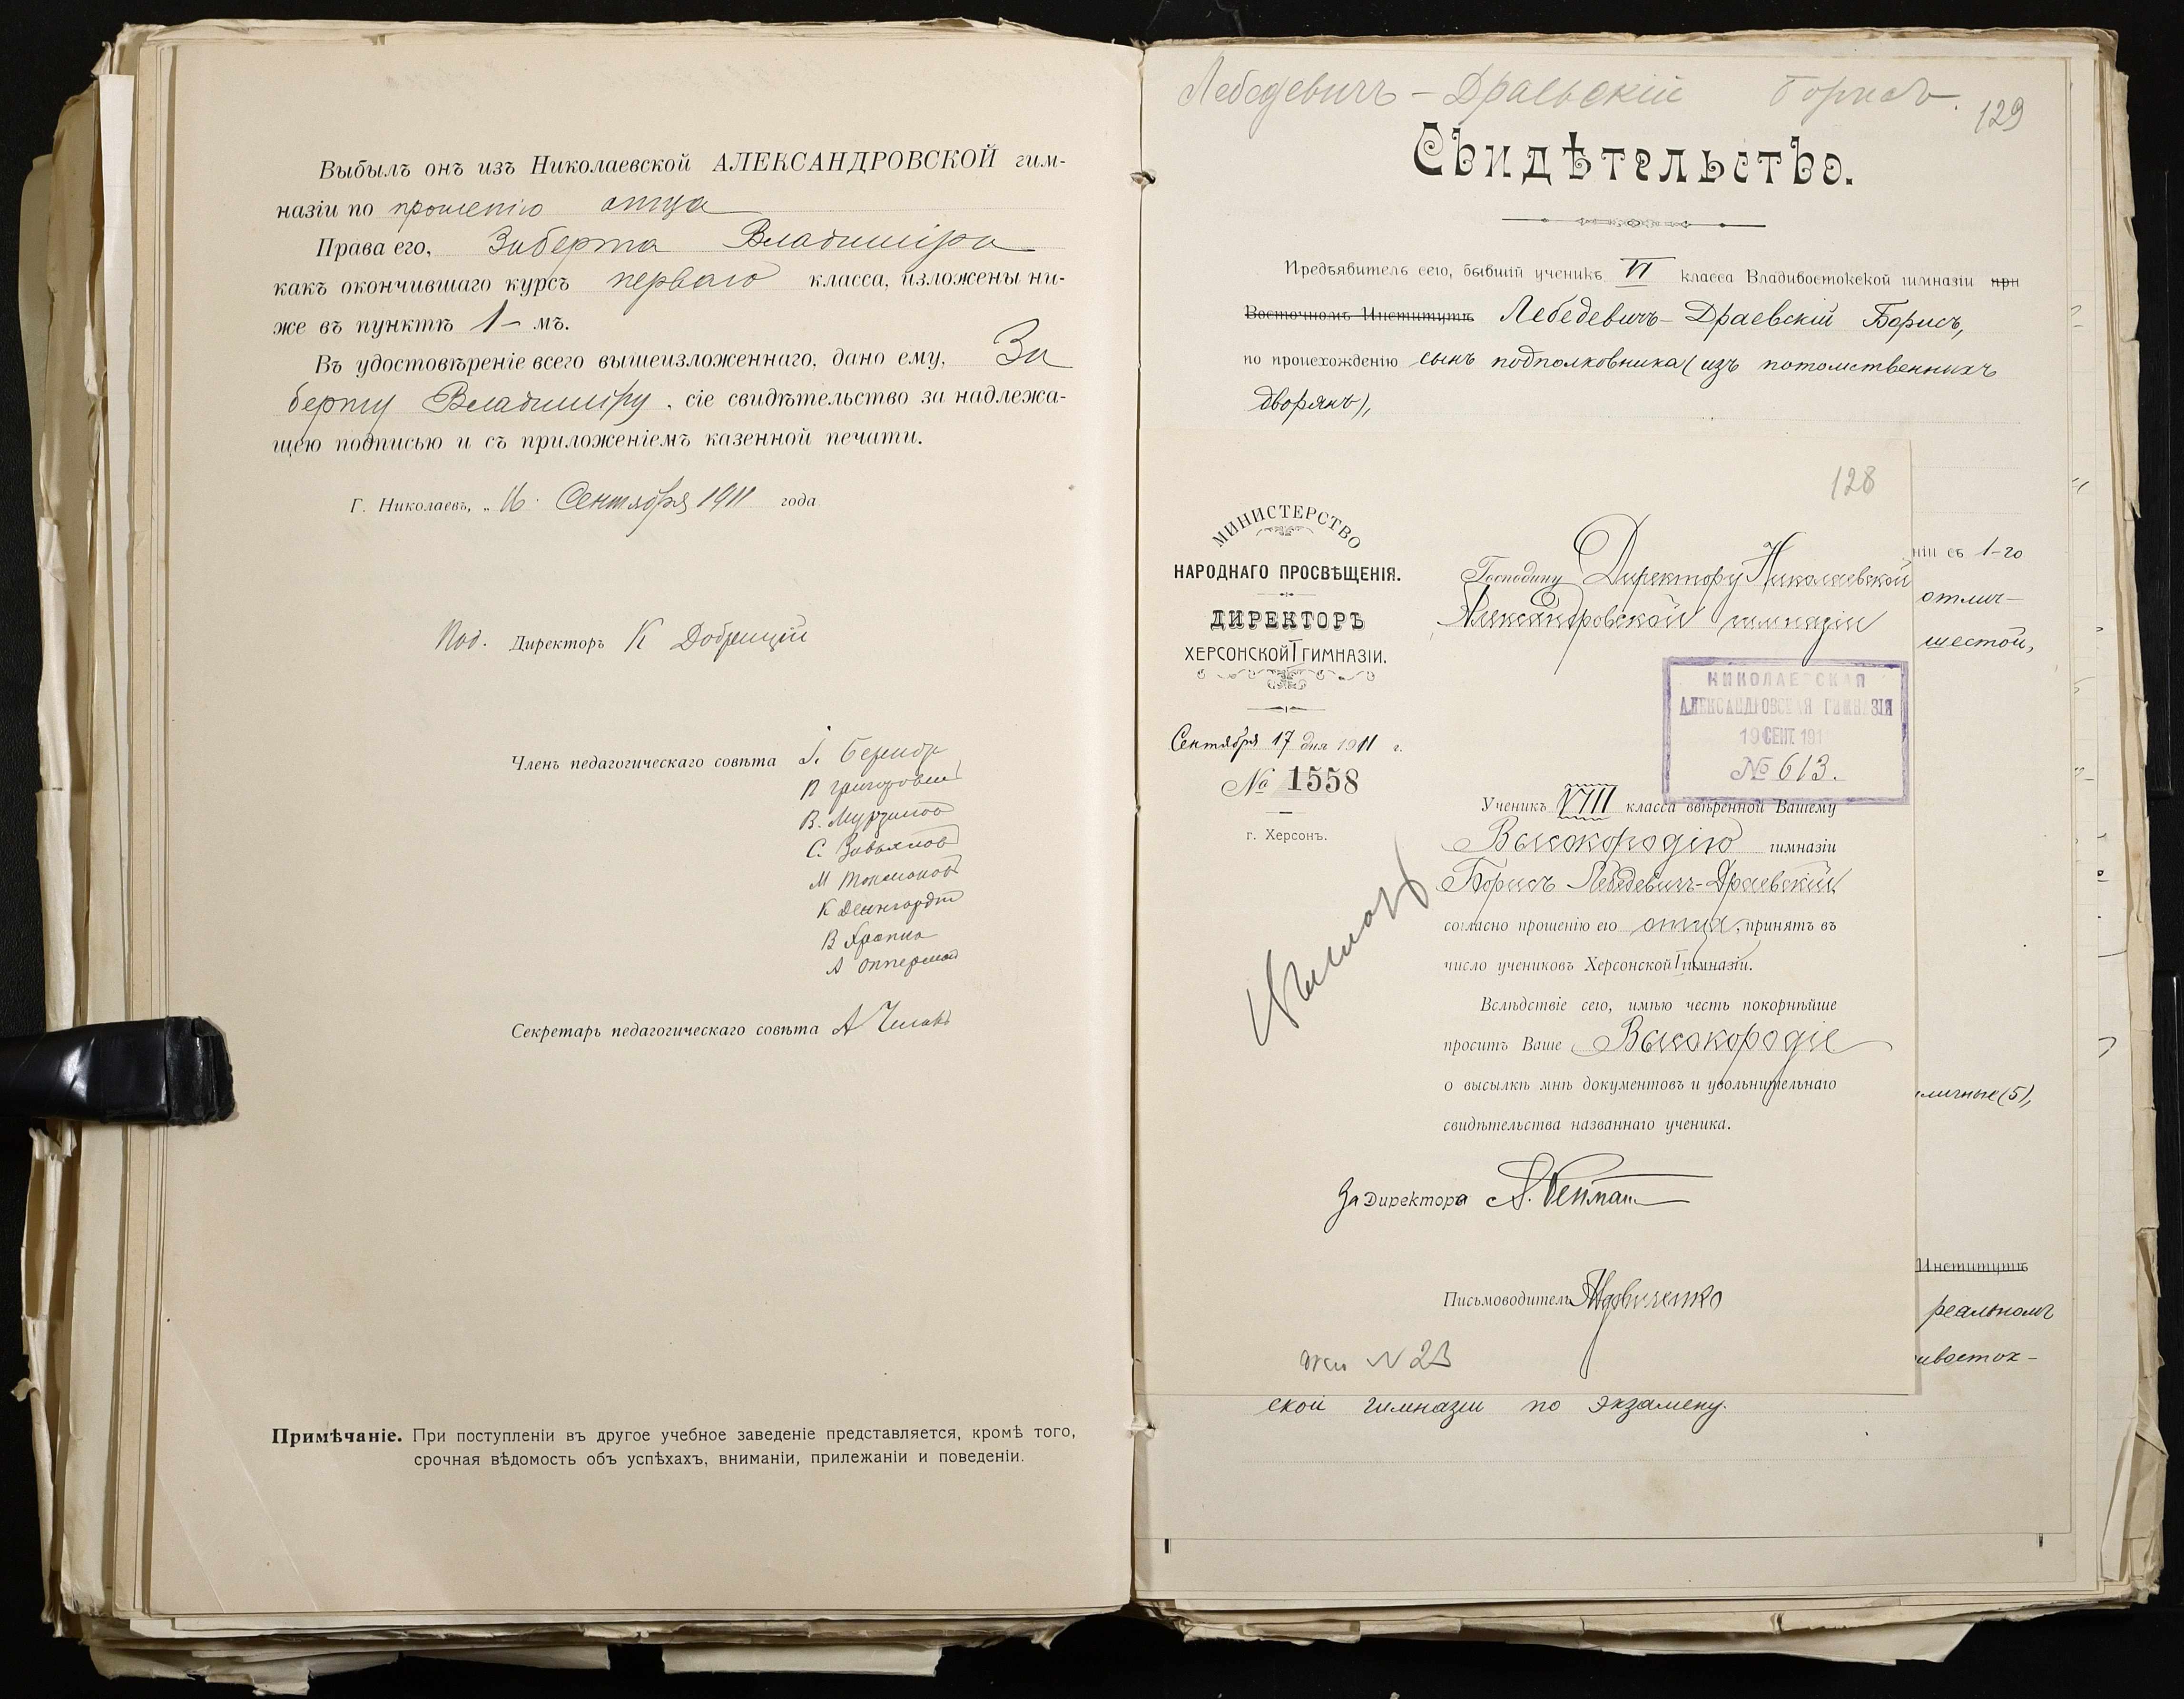 Выбылъ онъ изъ Николаевской АЛЕКСАНДРОВСКОЙ гим-
назіи по прошенію отца
Права его, Зиберта Владиміра
какъ окончившаго курсъ перваго класса, изложены ни-
же въ пунктѣ 1-мъ.
Въ удостовѣреніе всего вышеизложеннаго, дано ему, Зи
берту Владиміру, сіе свидѣтельство за надлежа-
щею подписью и съ приложеніемъ казенной печати.
Г. Николаевъ, „16" Сентября 1911 года
Под. Директоръ К
Членъ педагогическаго совѣта
Секретарь педагогическаго совѣта А
Примѣчаніе. При поступленіи въ другое учебное заведеніе представляется, кромѣ того,
срочная вѣдомость объ успѣхахъ, вниманіи, прилежаніи и поведеніи.
Лебедевичъ-Драевскій Борисъ.
129
Свидѣтельство.
Предъявитель сего, бывшій ученикъ VI класса Владивостокской гимназіи при
Восточномъ Институтѣ Лебедевичъ-Драевскій Борисъ,
по происхожденію сынъ подполковника (изъ потомственныхъ
дворянъ),
ніи съ 1-го
отлич-
шестой,
личные (5),
Институтѣ
реальномъ
ивосток-
ской гимназіи по экзамену.
128
МИНИСТЕРСТВО
НАРОДНАГО ПРОСВѢЩЕНІЯ.
ДИРЕКТОРЪ
ХЕРСОНСКОЙ I ГИМНАЗІИ.
Сентября 17 дня 1911 г.
№ 1558
г. Херсонъ.
Господину Директору Николаевской
Александровской гимназіи
НИКОЛАЕВСКАЯ
АЛЕКСАНДРОВСКАЯ ГИМНАЗІЯ
19 СЕНТ. 191
№ 613.
Ученикъ VIII класса ввѣренной Вашему
Высокородію гимназіи
Борисъ Лебедевичъ-Драевскій
согласно прошенію его отца, принятъ въ
число учениковъ Херсонской I гимназіи.
Вслѣдствіе сего, имѣю честь покорнѣйше
просить Ваше Высокородіе
о высылкѣ мнѣ документовъ и увольнительнаго
свидѣтельства названнаго ученика.
За Директора А.
Письмоводитель